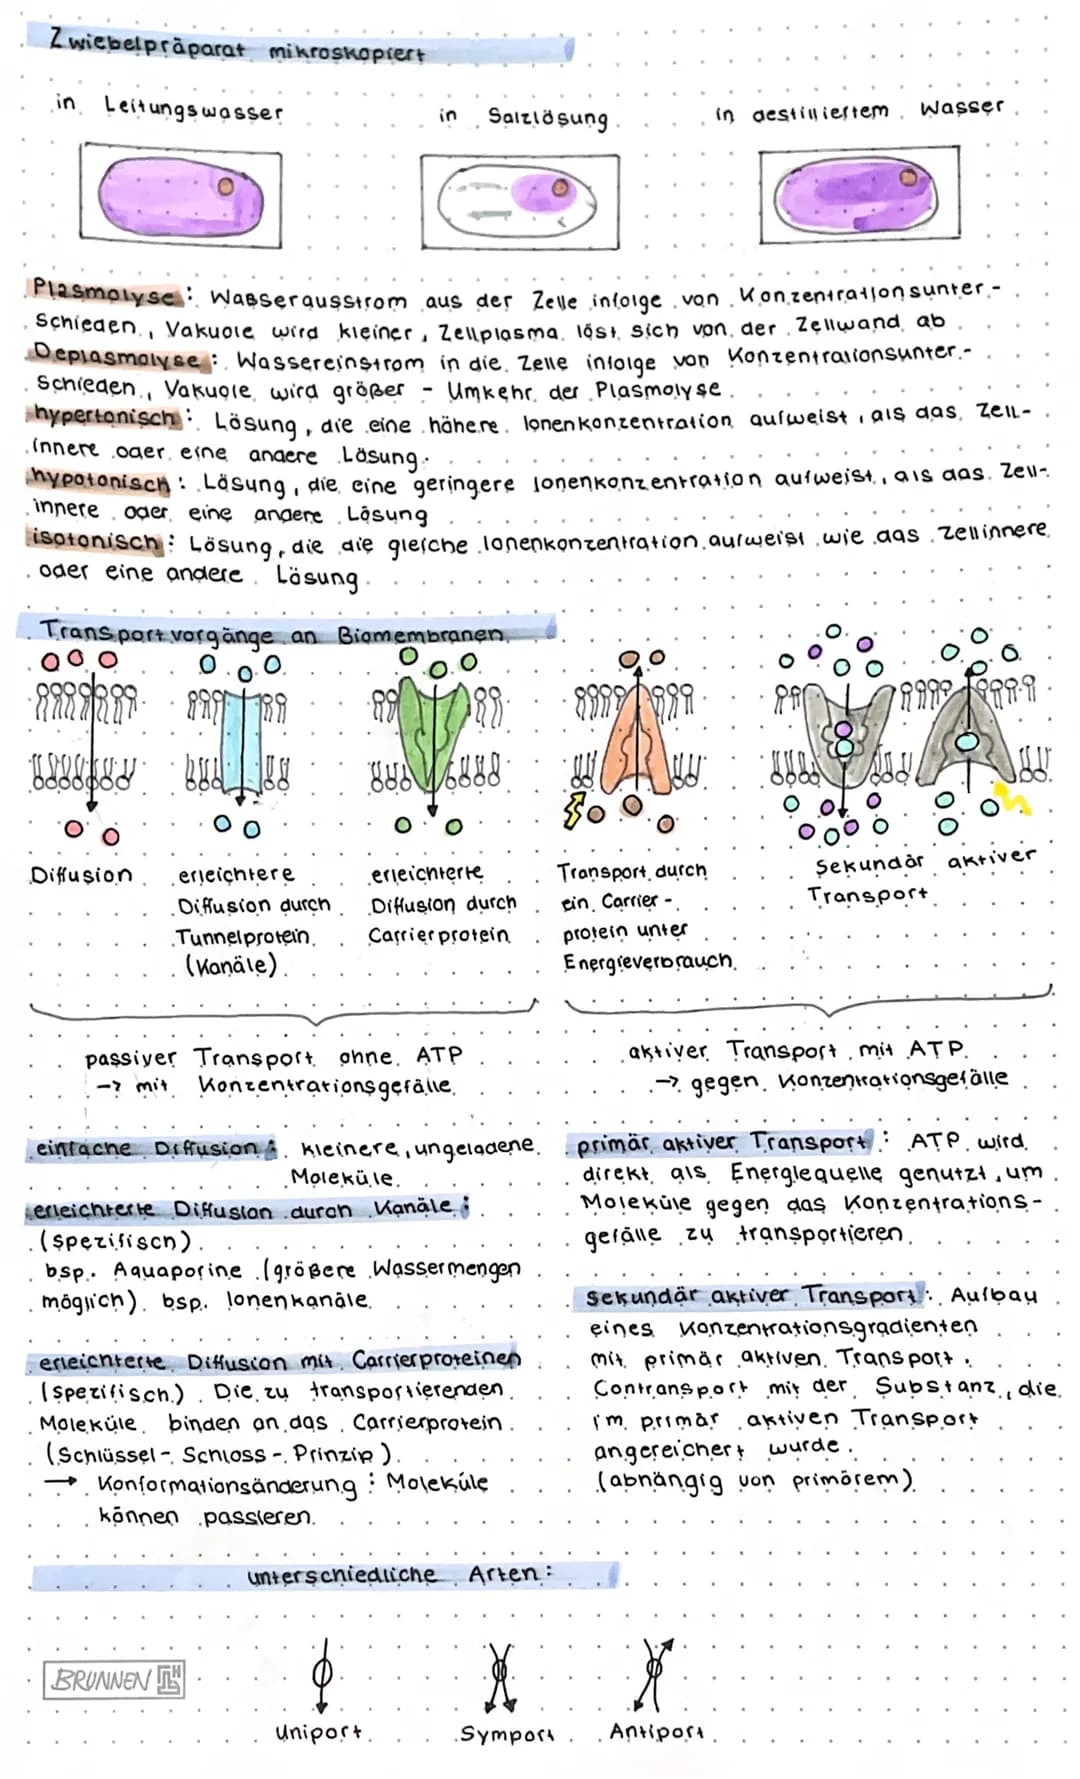 Zwiebelpräparat mikroskopiert
in Leitungswasser
in Salzlösung
in destilliertem Wasser
Plasmolyse: Wasserausstrom aus der Zelle infolge von Konzentrationsunter-
schieden, Vakuole wird kleiner, Zellplasma löst sich von der Zellwand ab
Deplasmolyse: Wassereinstrom in die Zelle infolge von Konzentrationsunter-
schieden, Vakuole wird größer - Umkehr der Plasmolyse
hypertonisch: Lösung, die eine höhere Ionenkonzentration aufweist, als das Zell-
innere oder eine andere Lösung.
hypotonisch: Lösung, die eine geringere Ionenkonzentration aufweist, als das Zell-
innere oder eine andere Lösung
isotonisch: Lösung, die die gleiche Ionenkonzentration aufweist wie das Zellinnere
oder eine andere Lösung
Transportvorgänge an Biomembranen
Diffusion
erleichtere
Diffusion durch
Tunnelprotein
(Kanäle)
erleichterte
Diffusion durch
Carrierprotein
Transport durch
ein Carrier-
protein unter
Energieverbrauch
Sekundär aktiver
Transport
passiver Transport ohne ATP
-> mit Konzentrationsgefälle
aktiver Transport mit ATP
-> gegen Konzentrationsgefälle
einfache Diffusion: kleinere, ungeladene
Moleküle
erleichterte Diffusion durch Kanäle:
(spezifisch)
bsp. Aquaporine (größere Wassermengen
möglich) bsp. Ionenkanäle
erleichterte Diffusion mit Carrierproteinen
(spezifisch) Die zu transportierenden
Moleküle binden an das Carrierprotein
(Schlüssel-Schloss-Prinzip)
→ Konformationsänderung: Moleküle
können passieren.
primär aktiver Transport: ATP wird
direkt als Energiequelle genutzt, um
Moleküle gegen das Konzentrations-
gefälle zu transportieren
sekundär aktiver Transport: Aufbau
eines Konzentrationsgradienten
mit primär aktiven Transport.
Contransport mit der Substanz, die
im primär aktiven Transport
angereichert wurde.
(abhängig von primärem)
unterschiedliche Arten:
BRUNNEN
Uniport
Symport
Antiport